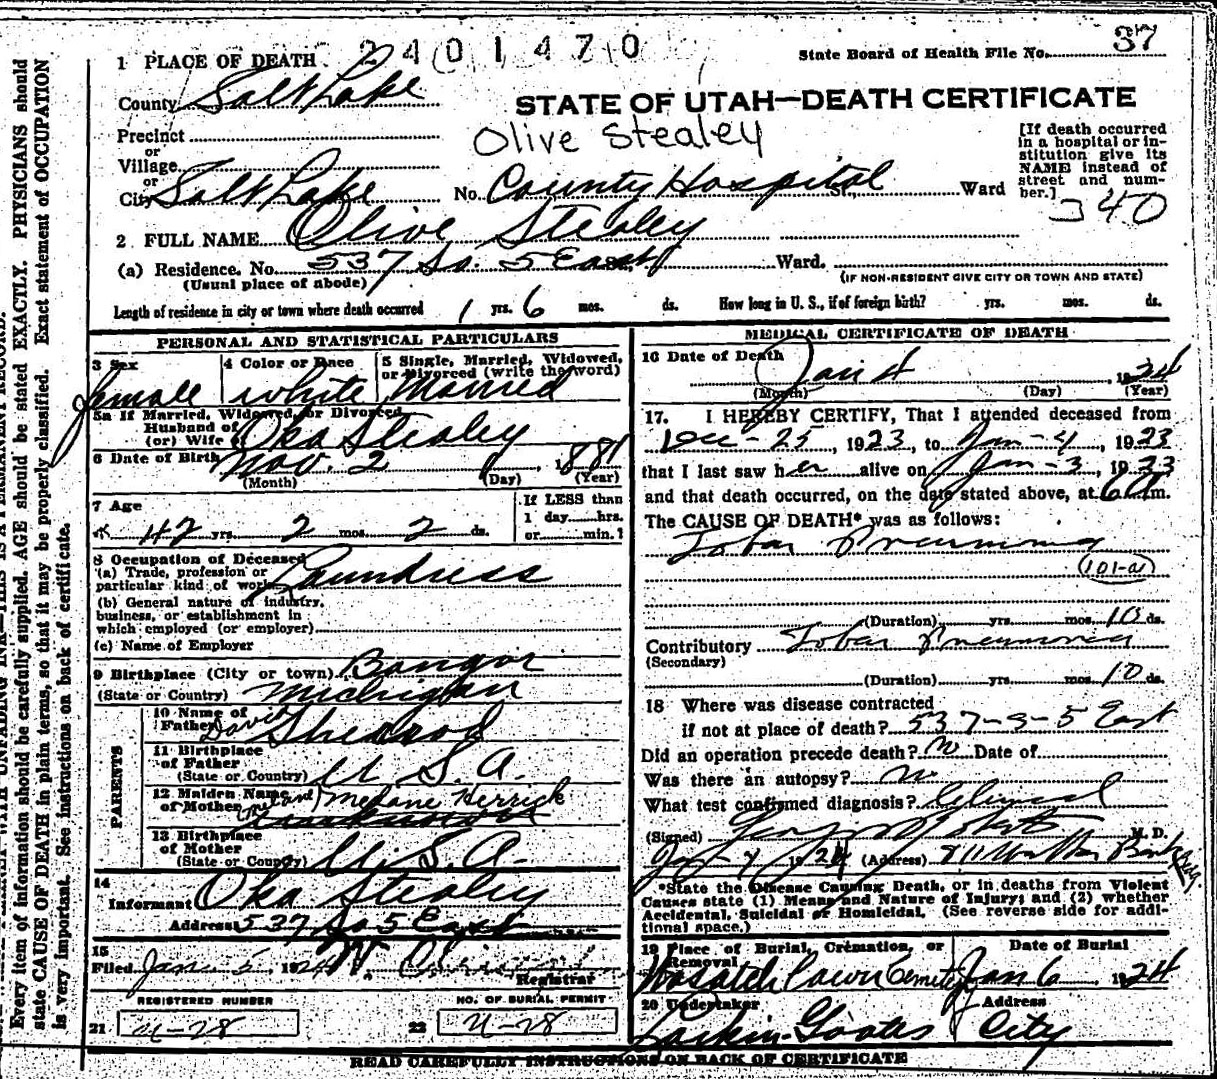 2401470
State Board of Health File No. 37
1 PLACE OF DEATH
County Salt Lake
STATE OF UTAH—DEATH CERTIFICATE
Olive Stealey
Precinct
or
Village
or
City Salt Lake No. County Hospital St., Ward
[If death occurred
in a hospital or in-
stitution give its
NAME instead of
street and num-
ber.]
340
2 FULL NAME Olive Stealey
(a) Residence. No. 537 So. 5 East Ward.
(Usual place of abode)
(IF NON-RESIDENT GIVE CITY OR TOWN AND STATE)
Length of residence in city or town where death occurred 1 yrs. 6 mos. ds. How long in U. S., if of foreign birth? yrs. mos. ds.
PERSONAL AND STATISTICAL PARTICULARS
3 Sex
female
4 Color or Race
white
5 Single, Married, Widowed,
or Divorced (write the word)
Married
5a If Married, Widowed, or Divorced
Husband of
(or) Wife of Oka Stealey
6 Date of Birth Nov. 2, 1881
(Month) (Day) (Year)
7 Age
42 yrs. 2 mos. 2 ds.
If LESS than
1 day.....hrs.
or.....min.?
8 Occupation of Deceased
(a) Trade, profession or
particular kind of work Laundress
(b) General nature of industry,
business, or establishment in
which employed (or employer)
(c) Name of Employer
9 Birthplace (City or town) Bangor
(State or Country) Michigan
PARENTS
10 Name of
Father David Sherrod
11 Birthplace
of Father
(State or Country) U. S. A.
12 Maiden Name
of Mother Melane Herrick
13 Birthplace
of Mother
(State or County) U. S. A.
14
Informant Oka Stealey
Address 537 So 5 East
15
Filed Jan 5, 1924
Registrar
REGISTERED NUMBER
21 U-28
NO. OF BURIAL PERMIT
22 U-28
MEDICAL CERTIFICATE OF DEATH
16 Date of Death
Jan 4, 1924
(Month) (Day) (Year)
17. I HEREBY CERTIFY, That I attended deceased from
Dec-25, 1923, to Jan-4, 1923
that I last saw her alive on Jan-3, 1923
and that death occurred, on the date stated above, at 6 A m.
The CAUSE OF DEATH* was as follows:
Lobar Pneumonia
101-a
(Duration) yrs. mos. 10 ds.
Contributory Lobar Pneumonia
(Secondary)
(Duration) yrs. mos. 10 ds.
18 Where was disease contracted
if not at place of death? 537-S-5 East
Did an operation precede death? No Date of
Was there an autopsy? No
What test confirmed diagnosis? Clinical
(Signed) M. D.
1924 (Address) Bank Bldg.
*State the Disease Causing Death, or in deaths from Violent
Causes state (1) Means and Nature of Injury; and (2) whether
Accidental, Suicidal or Homicidal. (See reverse side for addi-
tional space.)
19 Place of Burial, Cremation, or
Removal
Wasatch Lawn Cemetery
Date of Burial
Jan 6 1924
20 Undertaker
Larkin-
Address
City
READ CAREFULLY INSTRUCTIONS ON BACK OF CERTIFICATE
Every item of information should be carefully supplied. AGE should be stated EXACTLY. PHYSICIANS should
state CAUSE OF DEATH in plain terms, so that it may be properly classified. Exact statement of OCCUPATION
is very important. See instructions on back of certificate.